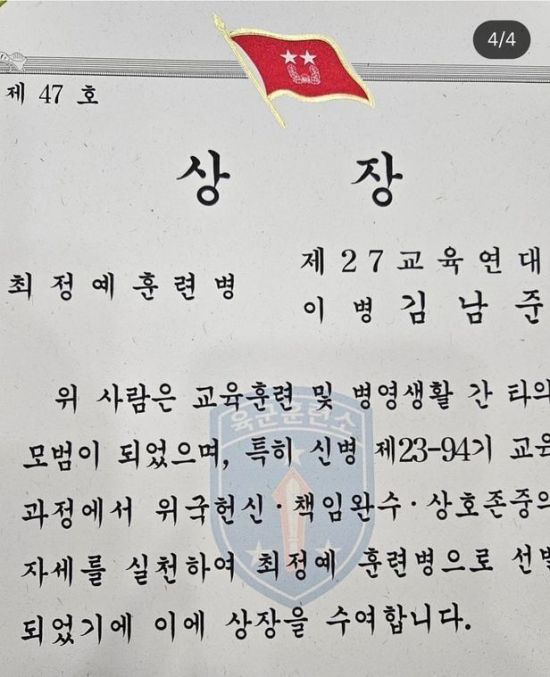 4/4
제 47 호
상 장
제27교육연대
최정예훈련병
이병 김남준
위 사람은 교육훈련 및 병영생활 간 타의
모범이 되었으며, 특히 신병 제23-94기 교육
과정에서 위국헌신·책임완수·상호존중의
자세를 실천하여 최정예 훈련병으로 선발
되었기에 이에 상장을 수여합니다.
육군훈련소